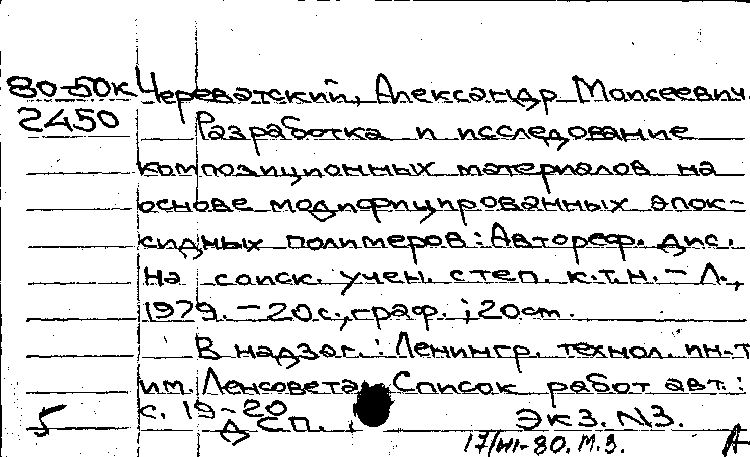 80-50к Череватский, Александр Моисеевич.
2450 Разработка и исследование
композиционных материалов на
основе модифицированных эпок-
сидных полимеров: Автореф. дис.
на соиск. учен. степ. к.т.н. - Л.,
1979. - 20 с., граф. ; 20 см.
В надзаг.: Ленингр. технол. ин-т
им. Ленсовета. Список работ авт.:
с. 19-20
5 Д СП. ЭКЗ. N3.
17/VII-80. М.З. А